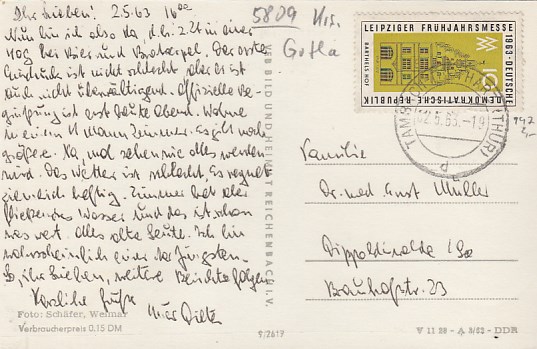 Ihr Lieben! 2.5.63 16oo
Nun bin ich also da, d.h. z.Zt in einer
HOG bei Bier und Der erste
Eindruck ist nicht schlecht aber es ist
auch nicht überwältigend. Offizielle Be-
grüßung ist erst heute Abend. Wohne
in einem 11 Mann Zimmer. Es gibt noch
größere. Na, mal sehen wie alles werden
wird. Das Wetter ist schlecht, es regnet
ziemlich heftig. Zimmer hat aber
fließendes Wasser und das ist schon
was wert. Alles alte Leute. Ich bin
wahrscheinlich einer der Jüngsten.
So, ihr Lieben, weitere Berichte folgen
Herzliche Grüße
Euer
Foto: Schäfer, Weimar
Verbraucherpreis 0,15 DM
VEB BILD UND HEIMAT REICHENBACH i. V.
9/2617
5809 Krs.
Gotha
LEIPZIGER FRÜHJAHRSMESSE
1963 · DEUTSCHE
DEMOKRATISCHE · REPUBLIK
BARTHELS HOF
10
TAMBACH-DIETHARZ (THÜR)
2.5.63.-19
Familie
Dr. med. Ernst Müller
Dippoldiswalde i/Sa
Bahnhofstr. 23
V 11 28 - A 3/62 - DDR